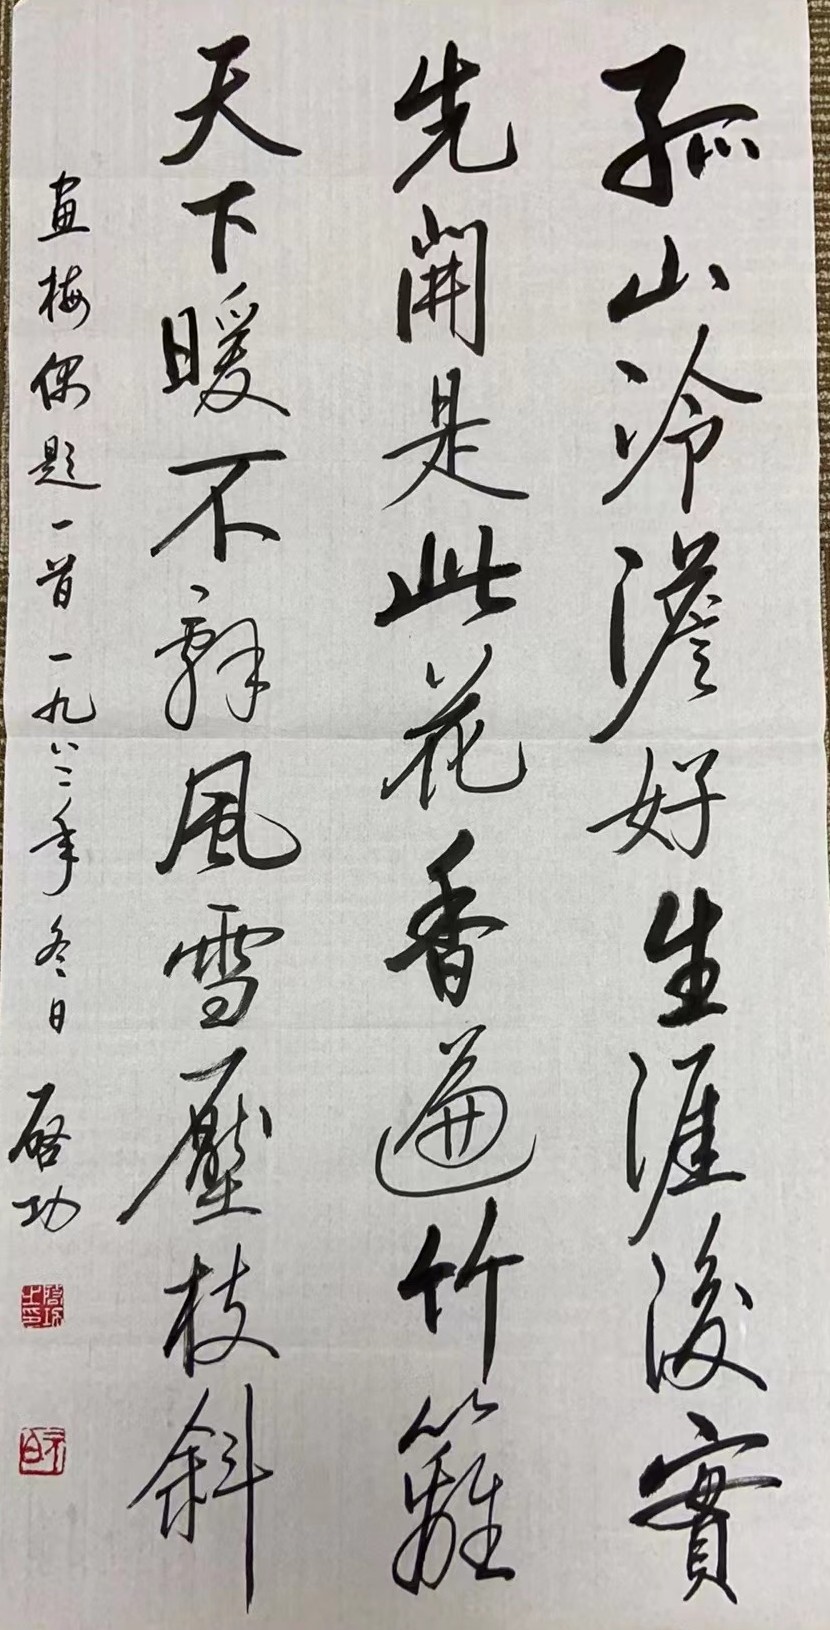 孤山冷澹好生涯後實
先開是此花香遍竹籬
天下暖不辭風雪壓枝斜
畫梅偶題一首一九八二年冬日
啓功
啓功之印
元白